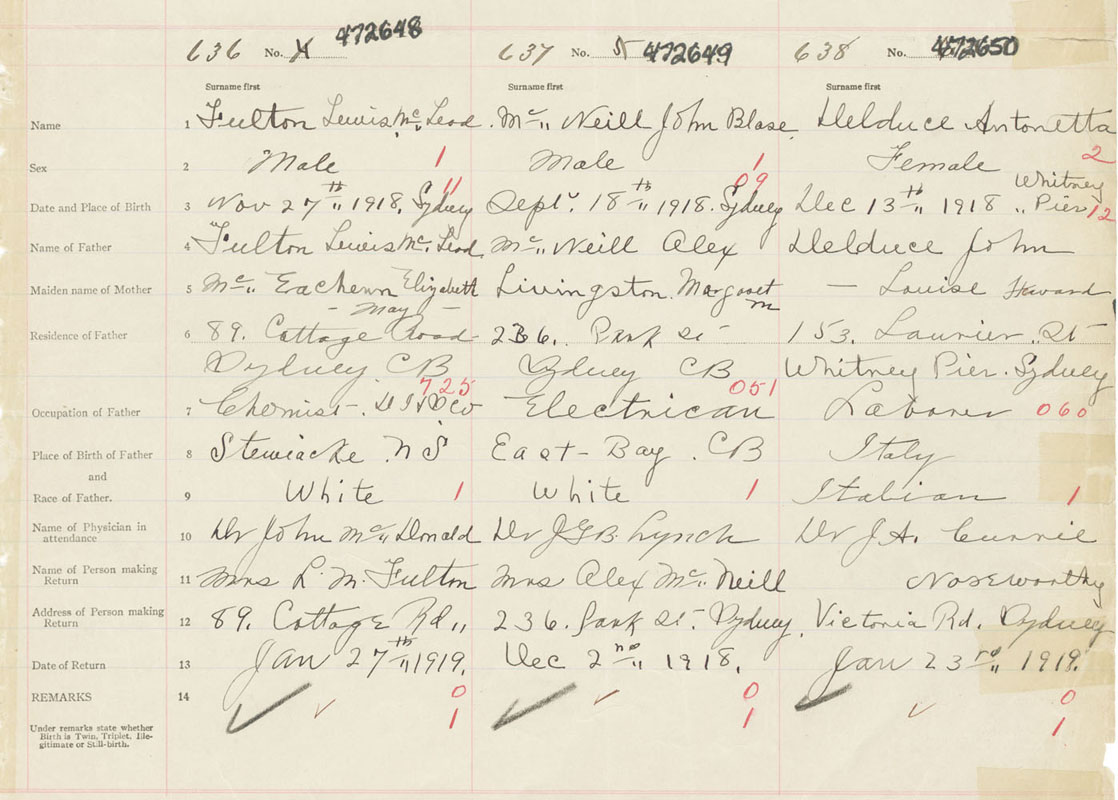 636 No. 4 472648 637 No. 5 472649 638 No. 472650
Surname first Surname first Surname first
Name 1 Fulton Lewis Mc,, Leod. Mc,, Neill John Blase Delduce Antonetta
Sex 2 Male 1 Male 1 Female 2
11 09 Whitney
Date and Place of Birth 3 Nov 27th,, 1918, Sydney Sept. 18th,, 1918. Sydney Dec 13th,, 1918 ,, Pier 12
Name of Father 4 Fulton Lewis Mc,, Leod Mc,, Neill Alex Delduce John
Maiden name of Mother 5 Mc,, Eachern Elizabeth Livingston. Margaret M — Louise
— May —
Residence of Father 6 89. Cottage Road 236. Park St 153. Laurier. St
Sydney. CB Sydney CB Whitney Pier. Sydney
725 051
Occupation of Father 7 Chemist - D I & S Co Electrican Laborer 060
Place of Birth of Father 8 Stewiacke. N S East-Bay. CB Italy
and
Race of Father. 9 White 1 White 1 Italian 1
Name of Physician in attendance 10 Dr John Mc,, Donald Dr J G B Lynch Dr J. A. Currie
Name of Person making Return 11 Mrs L. M. Fulton Mrs Alex Mc,, Neill Noseworthy
Address of Person making Return 12 89. Cottage Rd,, 236. Park St-. Sydney. Victoria Rd. Sydney
Date of Return 13 Jan 27th,, 1919. Dec 2nd,, 1918. Jan 23rd,, 1919.
REMARKS 14 0 0 0
Under remarks state whether Birth is Twin, Triplet, Ille- gitimate or Still-birth. 1 1 1